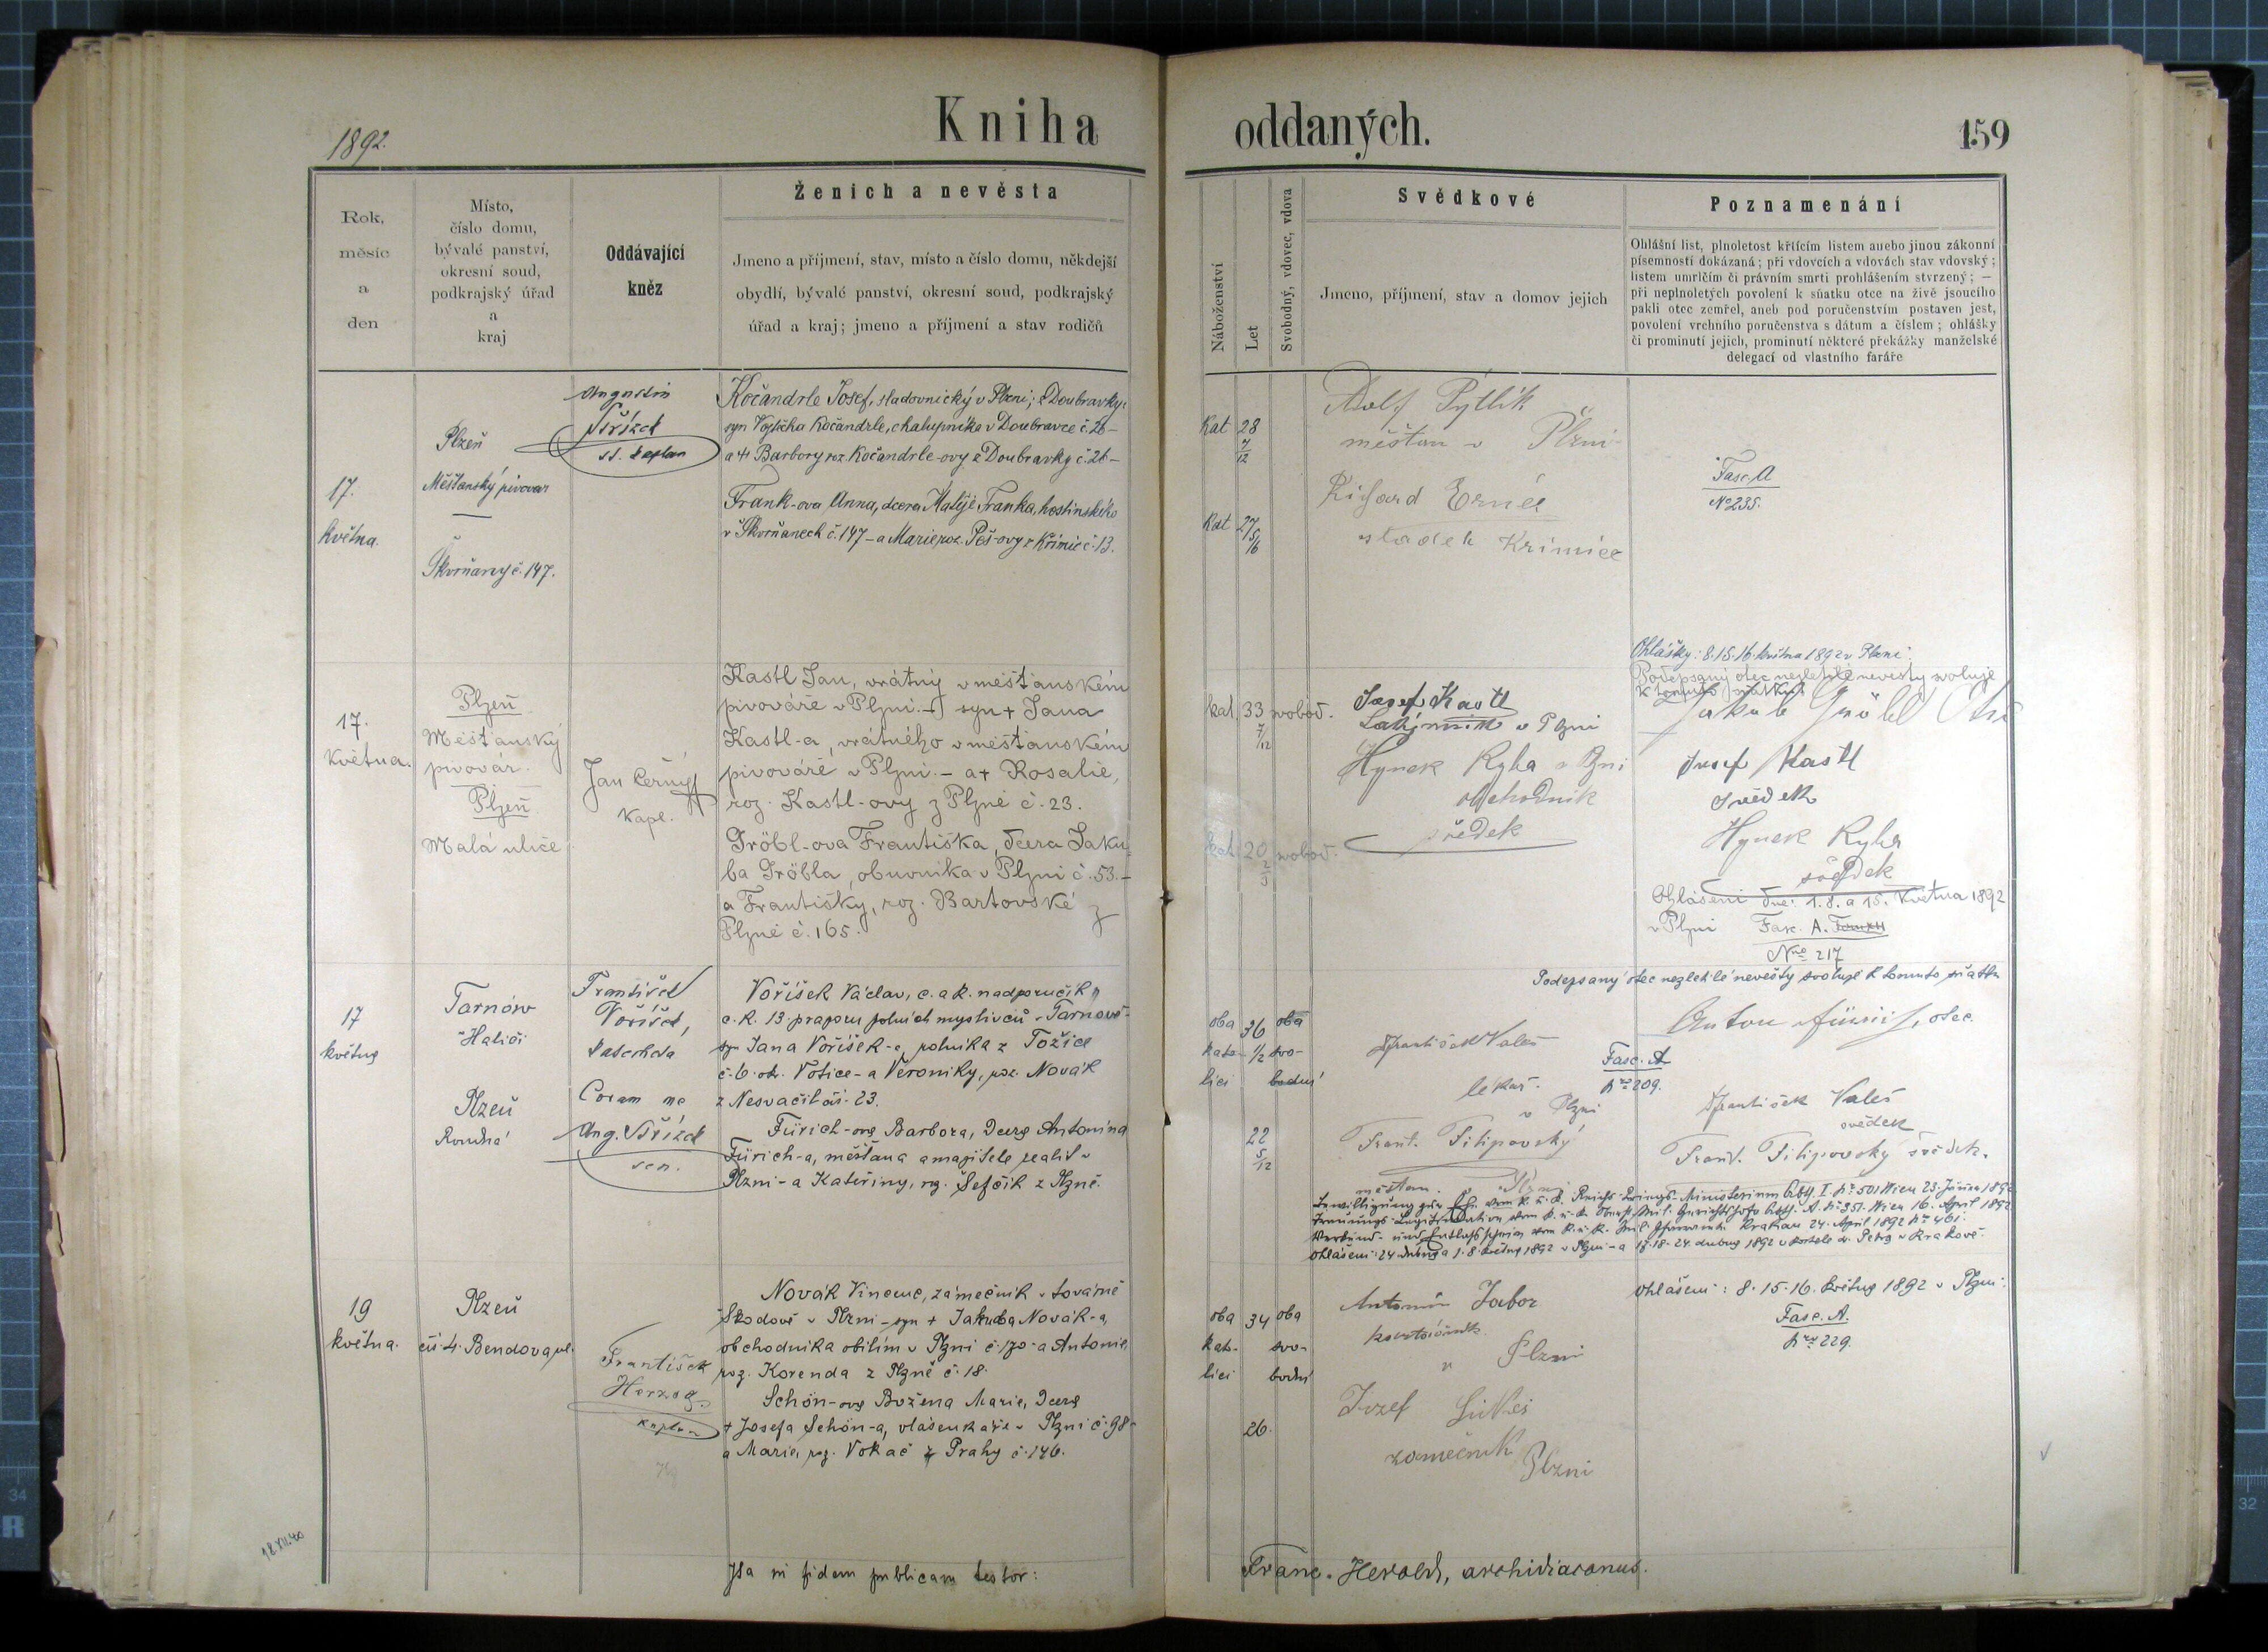 1892.
Kniha oddaných.
159
Rok,
měsíc
a
den
Místo,
číslo domu,
bývalé panství,
okresní soud,
podkrajský úřad
a
kraj
Oddávající
kněz
Ženich a nevěsta
Jmeno a příjmení, stav, místo a číslo domu, někdejší
obydlí, bývalé panství, okresní soud, podkrajský
úřad a kraj; jmeno a příjmení a stav rodičů
Náboženství
Let
Svobodný, vdovec, vdova
Svědkové
Jmeno, příjmení, stav a domov jejich
Poznamenání
Ohlášní list, plnoletost křticím listem anebo jinou zákonní
písemností dokázaná; při vdovcích a vdovách stav vdovský;
listem umrlčím či právním smrti prohlášením stvrzený; —
při neplnoletých povolení k sňatku otce na živě jsoucího
pakli otec zemřel, aneb pod poručenstvím postaven jest,
povolení vrchního poručenstva s dátum a číslem; ohlášky
či prominutí jejich, prominutí některé překážky manželské
delegací od vlastního faráře
17.
května.
Plzeň
Měšťanský pivovar
Škvrňany č. 147.
Augustin
Střízek
kaplan
Kočandrle Josef, sladovnický v Plzni; z Doubravky
syn Vojtěcha Kočandrle, chalupníka v Doubravce č. 26 –
a + Barbory roz. Kočandrle-ovy z Doubravky č. 26 –
Frank-ova Anna, dcera Matěje Franka, hostinského
v Škvrňanech č. 147 – a Marie roz. Peš-ovy z Křimic č. 13.
Kat 28
7/12
Kat 27
5/6
Adolf Pytlík
měšťan v Plzni
Richard Ernée
sládek Křimice
Fasc. A
No 235.
17.
května.
Plzeň
Měšťanský
pivovár.
Plzeň
Malá ulice
Jan Černý
Kapl.
Kastl Jan, vrátný v měšťanském
pivováře v Plzni. – syn + Jana
Kastl-a, vrátného v měšťanském
pivováře v Plzni. – a + Rosalie,
roz. Kastl-ovy z Plzně č. 23.
Gröbl-ova Františka, dcera Jaku-
ba Gröbla, obuvníka v Plzni č. 53. –
a Františky, roz. Bartovské z
Plzně č. 165.
kat. 33 svobod.
7/12
kat. 20 svobod.
2/3
Josef Kastl
v Plzni
Hynek Ryba v Plzni
obchodník
svědek
Ohlášky: 8. 15. 16. května 1892 v Plzni.
Podepsaný otec nezletilé nevěsty svoluje
k tomuto sňatku.
Jakub Gröbl Otec
Josef Kastl
svědek
Hynek Ryba
svědek
Ohlášení dne: 1. 8. a 15. května 1892
v Plzni Fasc. A.
Nro 217
17
května
Tarnów
Halič
Plzeň
Roudná
František
Voříšek,
katecheta
Coram me
Aug. Střízek
sen.
Voříšek Václav, c. a k. nadporučík
c. k. 13. praporu polních myslivců v Tarnově –
syn Jana Voříšek-a, rolníka z Tožice
č. 6. ok. Votice – a Veroniky, roz. Novák
z Nesvačil č. 23.
Fürich-ova Barbora, dcera Antonína
Fürich-a, měšťana a majitele realit v
Plzni – a Kateřiny, roz. Šefčík z Plzně.
oba 36 oba
kato- 1/2 svo-
líci bodní
22
5/12
František Valeš
lékař
v Plzni
Frant. Filipovský
měšťan v Plzni
Podepsaný otec nezletilé nevěsty svoluje k tomuto sňatku
Anton Fürich, otec.
Fasc. A
Nro 209.
František Valeš
svědek
Frant. Filipovský svědek.
Bewilligung zur Ehe vom k. u. k. Reichs-Kriegs-Ministerium Abth. I. Nr 501 Wien 23. Jänner 1892
Trauungs-Legitimation vom k. u. k. Mil. Gerichtshofe Abth. A. Nr 351. Wien 16. April 1892
Verkünd- und Entlaßschein vom k. u. k. Mil. Pfarramte Krakau 24. April 1892 Nr 461.
Ohlášení: 24. dubna a 1. 8. května 1892 v Plzni – a 17. 18. 24. dubna 1892 v kostele sv. Petra v Krakově.
19
května.
Plzeň
čís. 4. Bendova ul.
František
Herzog
kaplan
Novák Vincenc, zámečník v továrně
Škodově v Plzni – syn + Jakuba Novák-a,
obchodníka obilím v Plzni č. 170 – a Antonie,
roz. Korenda z Plzně č. 18.
Schön-ova Božena Marie, dcera
+ Josefa Schön-a, vlásenkáře v Plzni č. 98 –
a Marie, roz. Vokáč z Prahy č. 146.
oba 34 oba
kato- svo-
líci bodní
26.
Antonín Tabor
v Plzni
Jozef
zámečník Plzni
Ohlášení: 8. 15. 16. května 1892 v Plzni.
Fasc. A.
Nro 229.
12 XII. 40
Ita in fidem publicam testor:
Franc. Herold, archidiaconus.
34
32
R